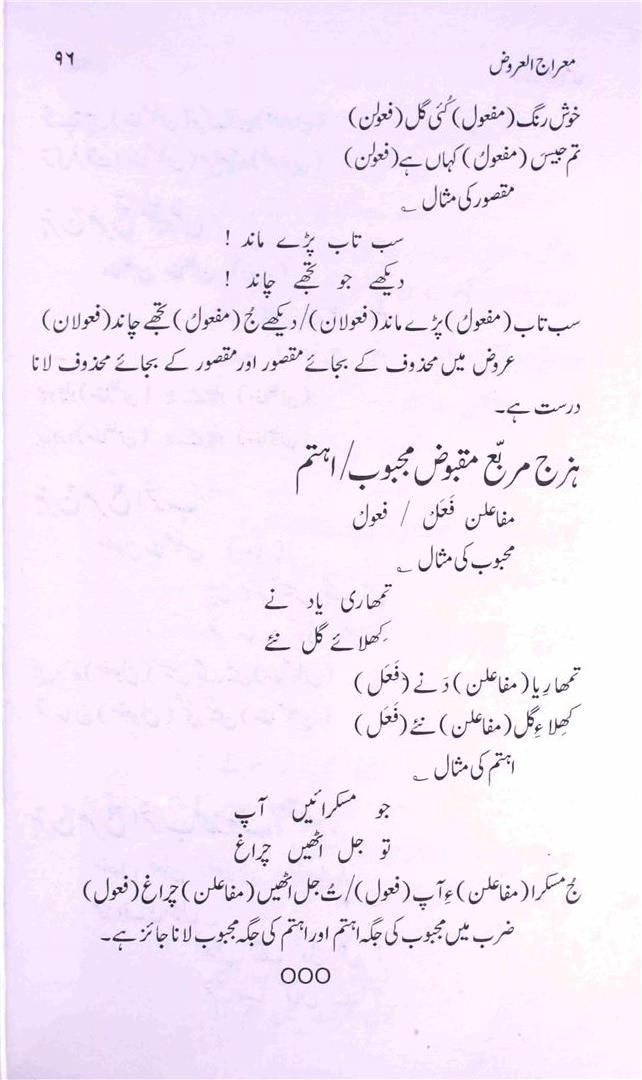 معراج العروض
۹۶
خوش رنگ (مفعول) کُئی گل (فعولن)
تم جیس (مفعولُ) کہاں ہے (فعولن)
مقصور کی مثال ؂
سب تاب پڑے ماند !
دیکھے جو تجھے چاند !
سب تاب (مفعولُ) پڑے ماند (فعولان) / دیکھے جُ (مفعولُ) تجھے چاند (فعولان)
عروض میں محذوف کے بجائے مقصور اور مقصور کے بجائے محذوف لانا
درست ہے۔
ہزج مربّع مقبوض مجبوب / اہتم
مفاعلن فَعَلْ / فعولْ
مجبوب کی مثال ؂
تمھاری یاد نے
کِھلائے گل نئے
تمھا رِیا (مفاعلن) دَنے (فَعَل)
کھلا ءِ گل (مفاعلن) نئے (فَعَل)
اہتم کی مثال ؂
جو مسکرائیں آپ
تو جل اٹھیں چراغ
جُ مسکرا (مفاعلن) ءِ آپ (فعول) / تُ جل اٹھیں (مفاعلن) چراغ (فعول)
ضرب میں مجبوب کی جگہ اہتم اور اہتم کی جگہ مجبوب لانا جائز ہے۔
○○○